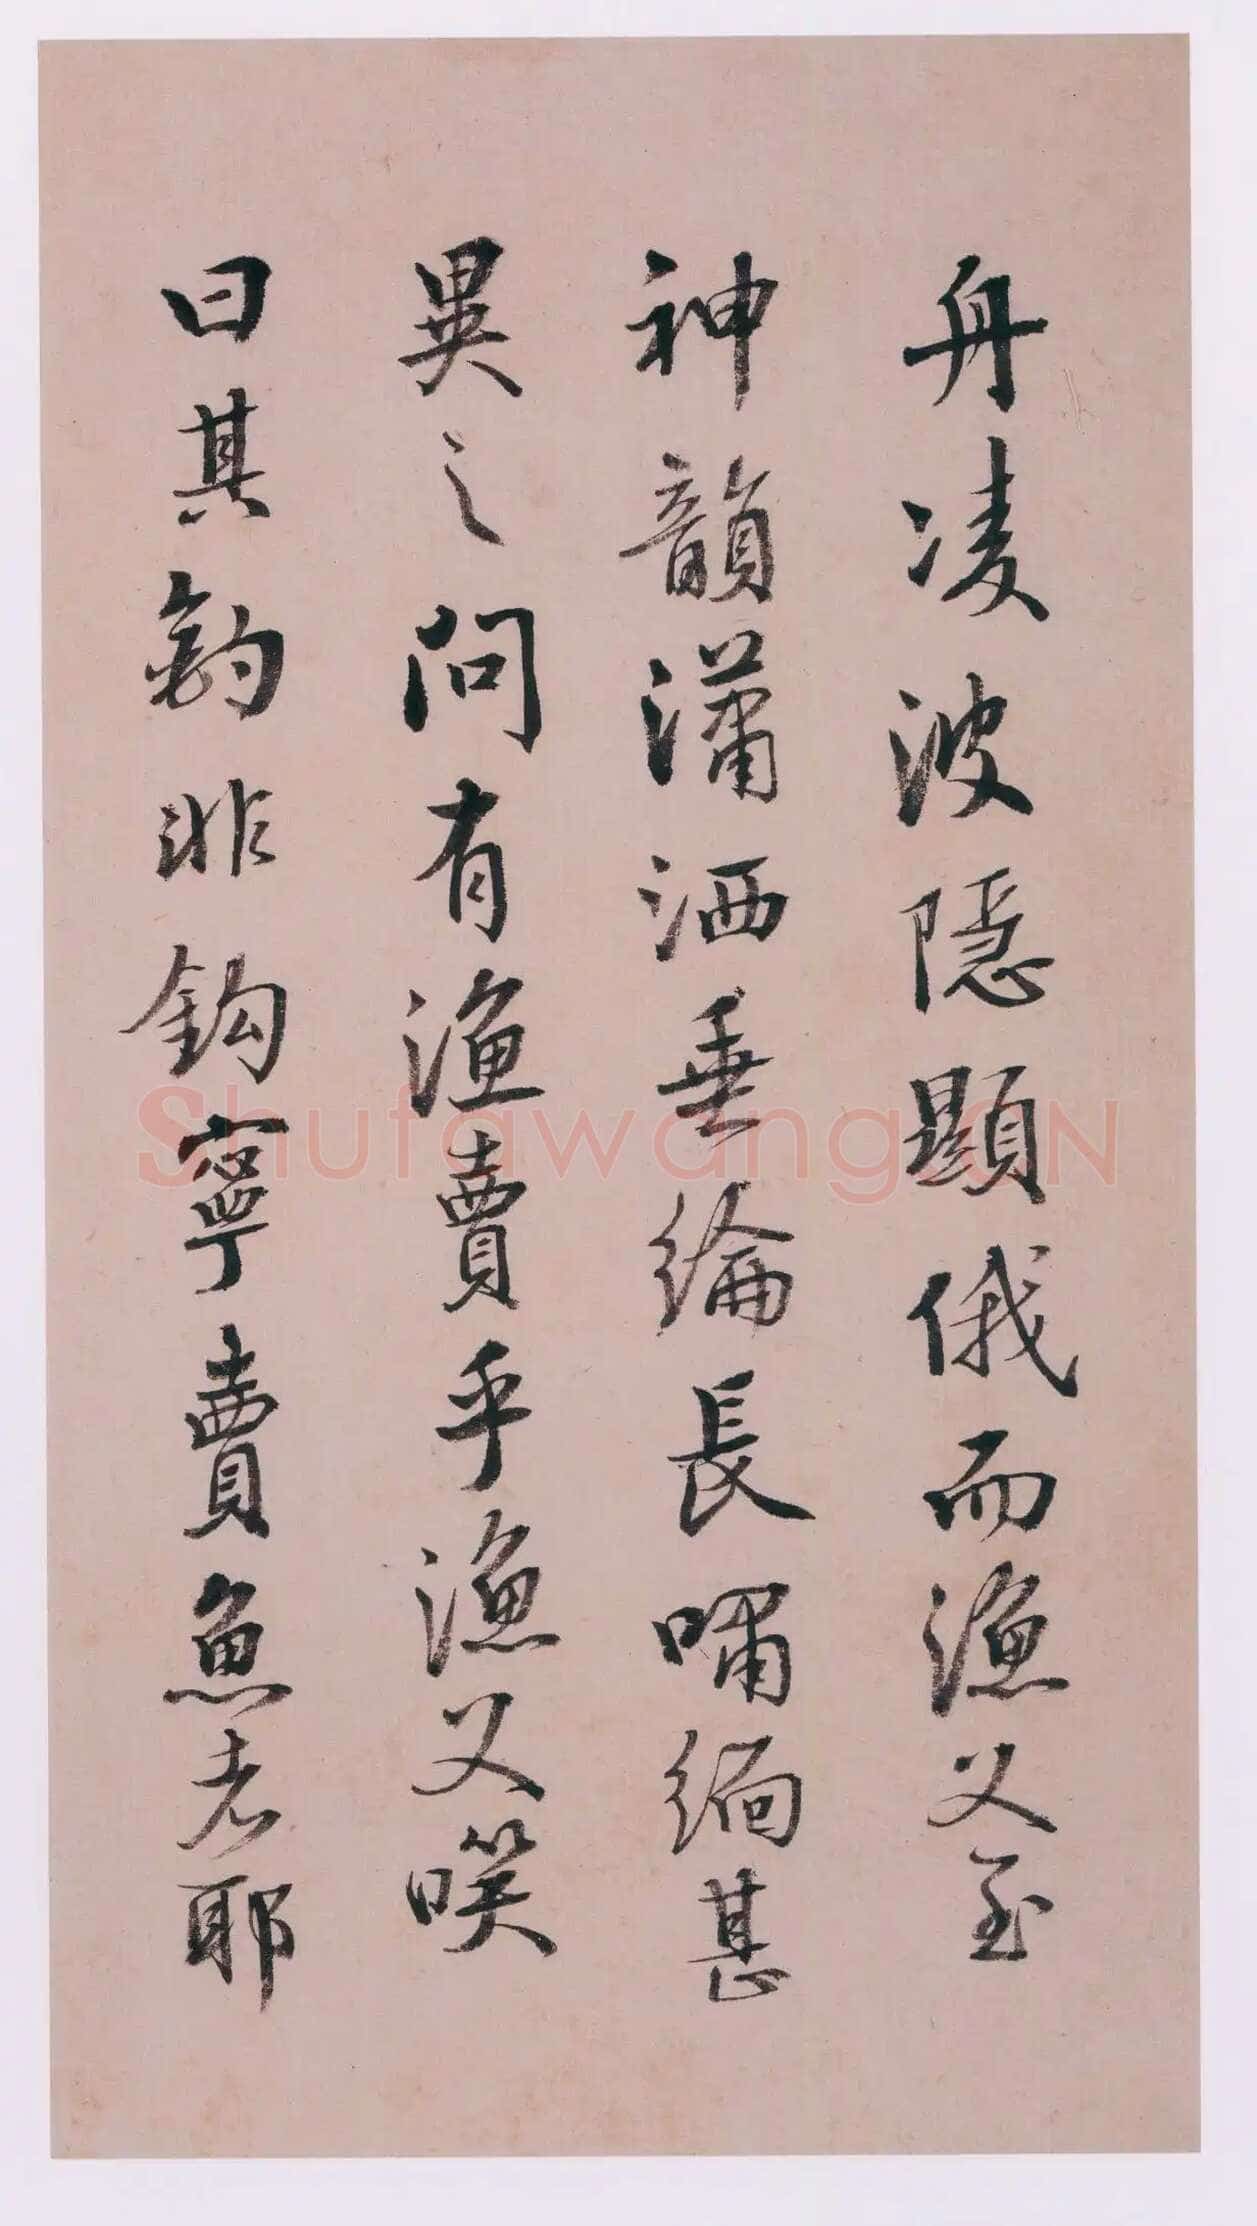 舟凌波隱顯俄而漁父至
神韻瀟洒垂綸長嘯緬甚
異之問有漁賣乎漁父㗛
曰其釣非鈎寧賣魚者耶
Shufawang.CN